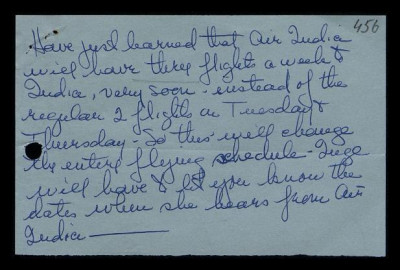 456
Have just learned that Air India
will have three flights a week to
India, very soon - instead of the
regular 2 flights on Tuesday &
Thursday - So this will change
the entire flying schedule - Inge
will have to let you know the
dates when she hears from Air
India